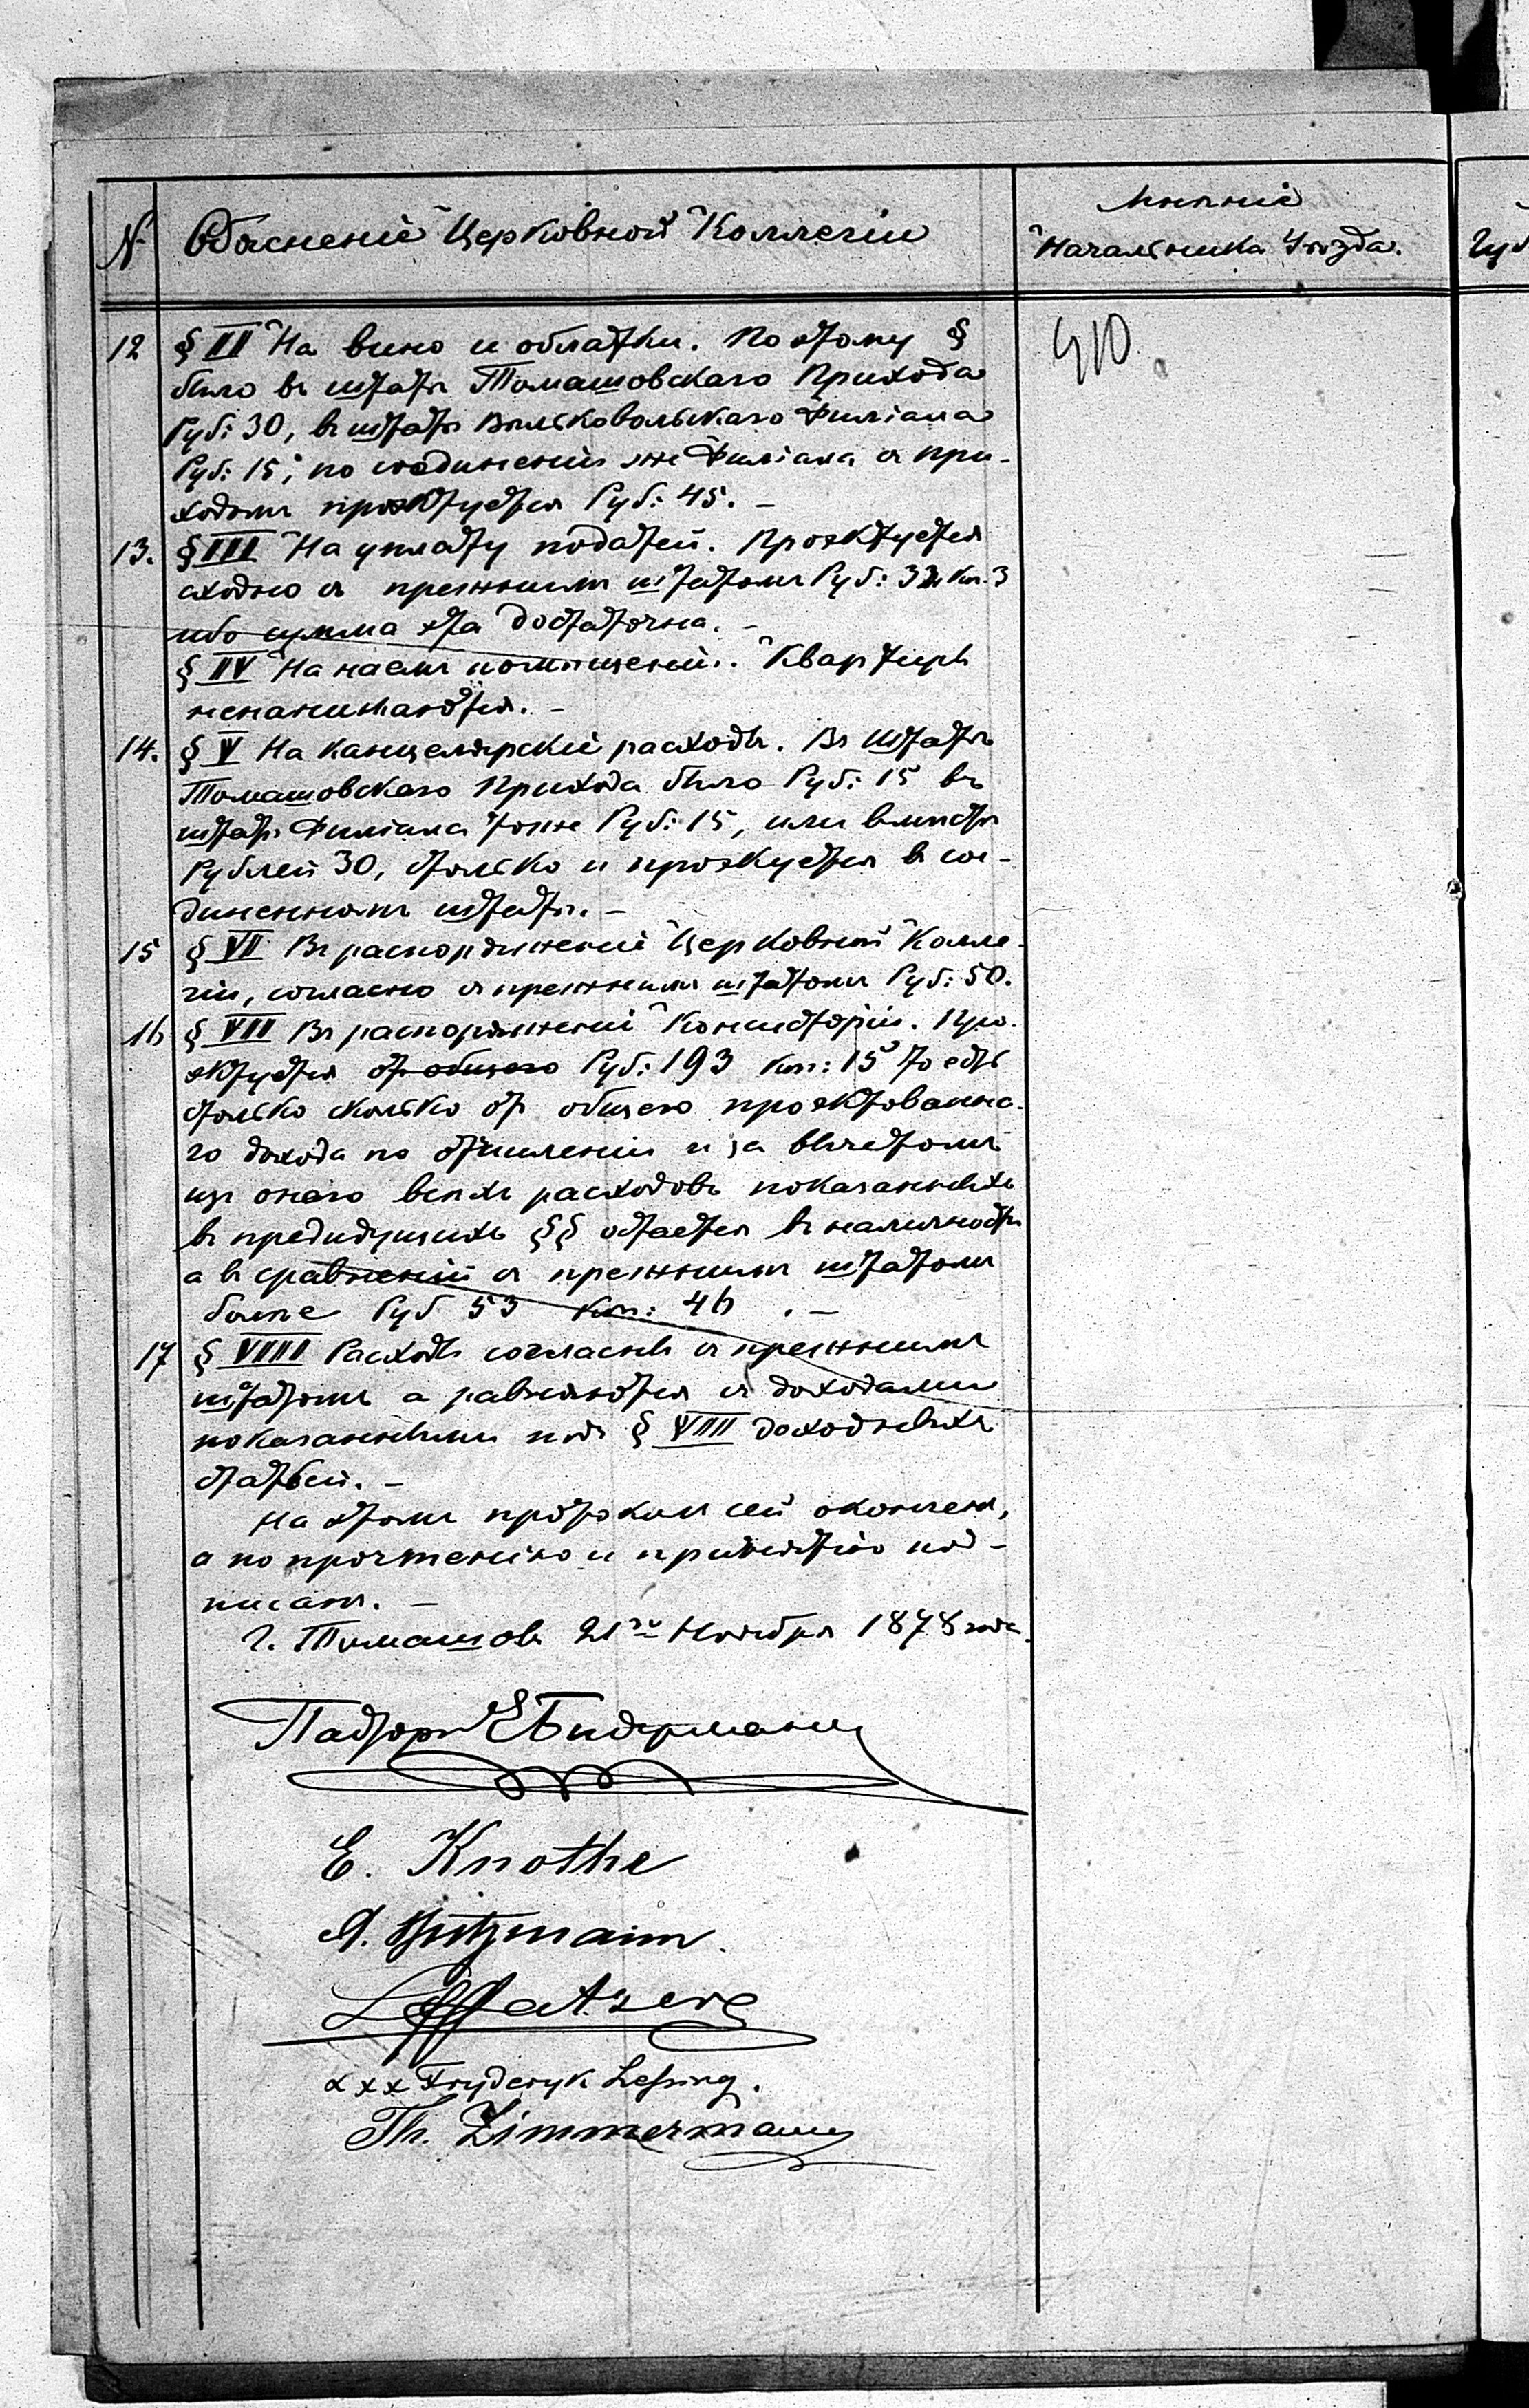 № Объясненіе Церковной Коллегіи
Мнѣніе
Начальника Уѣзда.
12 § II На вино и облатки. По этому §
было въ штатѣ Томашовскаго Прихода
Руб: 30, въ штатѣ Вильковольскаго Филіала
Руб: 15, по соединеніи же Филіала съ при-
ходомъ проэктуется Руб: 45. –
13. § III На уплату податей. Проэктуется
сходно съ прежнимъ штатомъ Руб: 33 Коп. 3
ибо сумма эта достаточна. –
§ IV На наемъ помѣщеній. Квартиръ
ненанимаются. –
14. § V На канцелярскіе расходы. Въ штатѣ
Томашовскаго Прихода было Руб: 15 въ
штатѣ Филіала тоже Руб: 15, или вмѣстѣ
Рублей 30, столько и проэкуется въ сое-
диненномъ штатѣ. –
15 § VI Въ распоряженіе Церковной Колле-
гіи, согласно съ прежнимъ штатомъ Руб: 50.
16 § VII Въ распоряженіе Консисторіи. Про-
эктуется отъ общаго Руб: 193 Коп: 15 то есть
столько сколько отъ общаго проэктованна-
го дохода по отчисленіи и за вычетомъ
изъ онаго всѣхъ расходовъ показанныхъ
въ предидущихъ §§ остается въ наличности
а въ сравненіи съ прежнимъ штатомъ
болѣе Руб 53 Коп: 46. –
17 § VIII Расходы согласны съ прежнимъ
штатомъ а равняются съ доходами
показанными подъ § VIII доходныхъ
статьей. –
На этомъ протоколъ сей оконченъ,
а по прочтенію и принятію под-
писанъ. –
Г. Томашовъ 21го Ноября 1878 года.
Пасторъ Е Бидерманъ
E. Knothe
xxx Fryderyk Lessing.
Th. Zimmermann